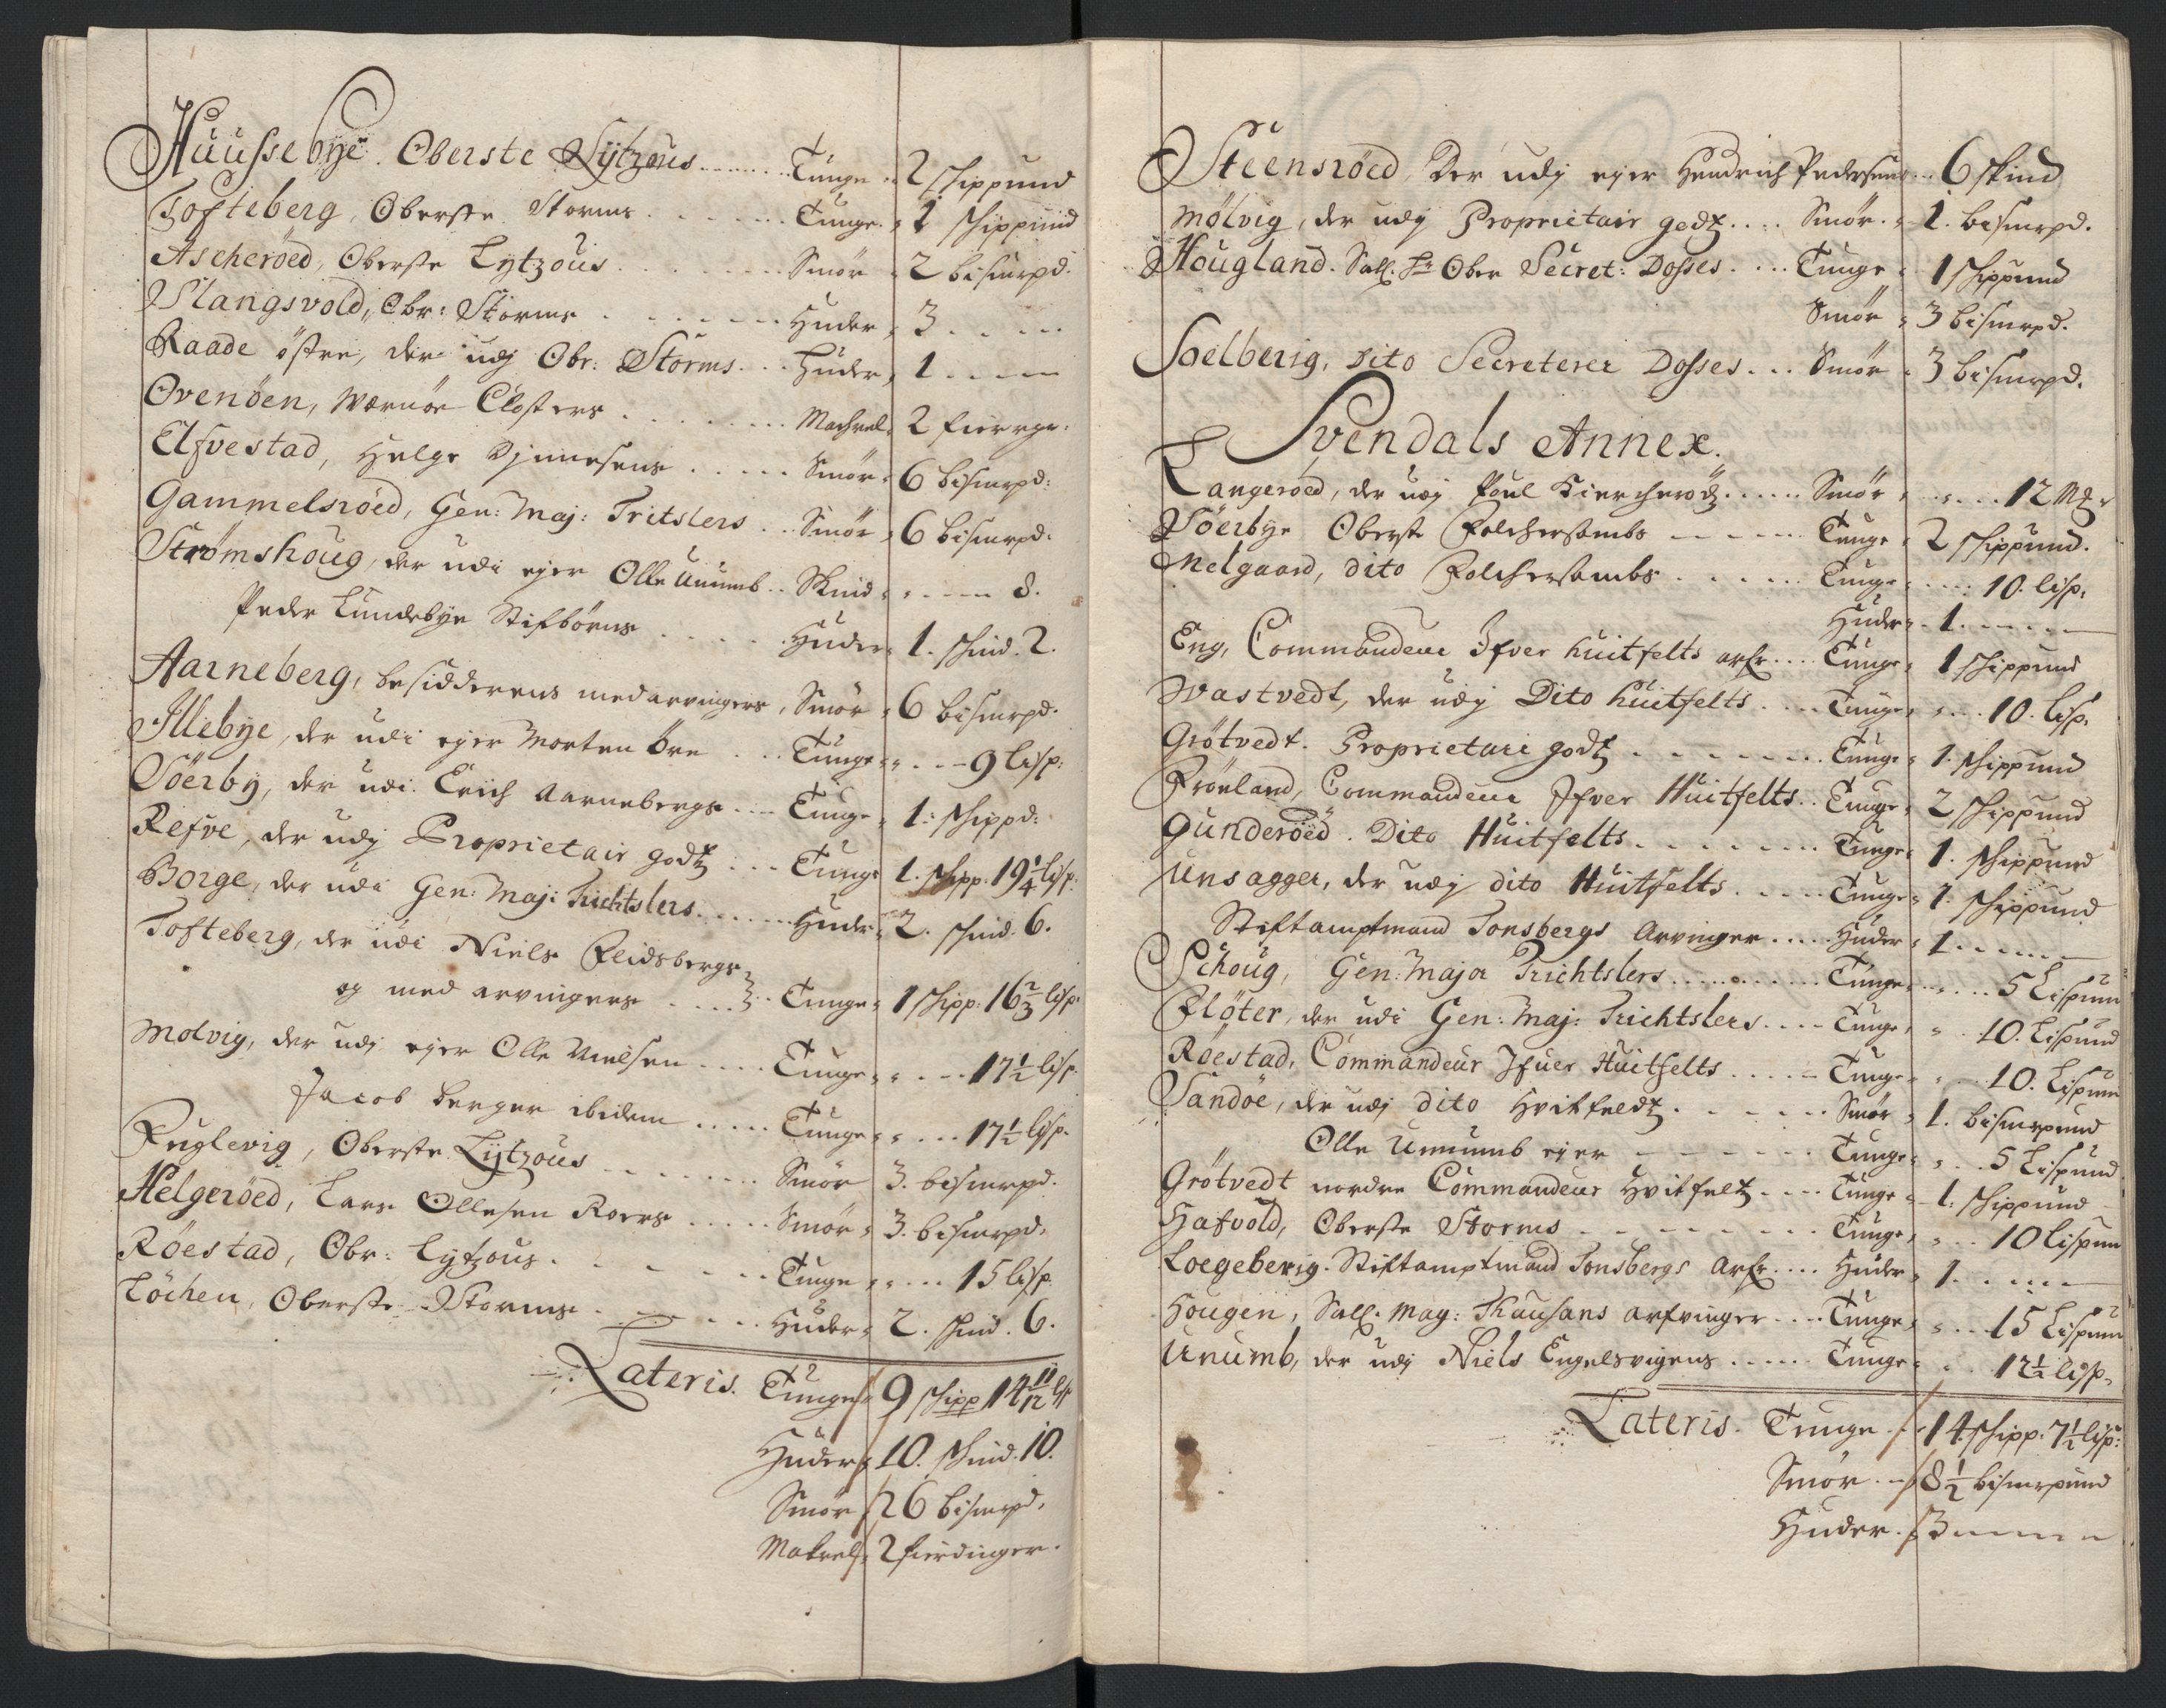 Huussebye. Oberste Lytzous ....... Tunge .. 2 schippund
Tofteberg, Oberste Storms ...... Tunge. 1 schippund
Ascheröed, Oberste Lytzous ....... Smör 2 bismrpd.
Slangsvold, Obr: Storms ...... Huder, 3 ....
Raade östre, der udj Obr: Storms ... Huder, 1 ----
Ovenöen, Wærnöe Closters ....... Machrel, 2 fierrge.
Elfvestad, Helge Simesens ..... Smör. 6 bismrpd:
Gammelsröed, Gen: Maj: Tritslers .. Smör, 6 bismrpd.
Strömshoug, der udi eyer Olle Unumb .. Skind, ---- 8.
Peder Lundebye Stifbörns ..... Huder, 1. schind. 2.
Aarneberg, besidderens medarvingers, Smör, 6 bismrpd.
Illebye, der udi eyer Morten Öre ... Tunge, --- 9 lisp:
Söerby, der udi Erich Aarnebergs --- Tunge, 1. schippd:
Refve, der udj Proprietair godtz ... Tunge 1. schipp. 19 1/4 lisp:
Borge, der udi Gen: Maj: Trichtslers ...... Huder, 2. schind. 6.
Tofteberg, der udi Niels Flidsbergs
og med arvingers .... Tunge, 1 schipp: 16 2/3 lisp.
Molvig, der udj eyer Olle Nielsen .... Tunge, --- 17 1/2 lisp.
Jacob Berger ibidem ..... Tunge, ... 17 1/2 lisp.
Fuglevig, Oberste Lytzous ------- Smör 3. bismrpd.
Helgeröed, Lars Ollesen Roers ..... Smör, 3. bismrpd.
Röestad, Obr: Lytzous ....... Tunge, .... 15 lisp.
Löchen, Oberste Storms ..... Huder, 2. schind. 6.
Lateris. Tunge, 9 schipp 14 11/12 lisp
Huder, 10. schind. 10.
Smör, 26 bismrpd,
Makrel, 2 fierdinger.
Steensröed, Der udj eyer Hendrich Pedersen .. 6 skind
Mölvig, der udj Proprietair godtz .... Smör. 1. bismrpd.
Hougland. Sall. Hr Ober Secret: Dosses .... Tunge, 1 schippund
Smör, 3 bismrpd.
Soelberig, Dito Secreterer Dosses ... Smör, 3 bismrpd.
Svendals Annex.
Langeröed, der udj Poul Kiercheröds ...... Smör, ... 12 Mk
Söerbye Oberste Folchersambs ------ Tunge, 2 schippund.
Melgaard, dito Folchersambs ...... Tunge, ... 10. lisp:
Huder, 1. -----
Eng, Commandeur Ifver Huitfelts arfr .... Tunge, 1 schippund
Wastvedt, der udj Dito Huitfelts .... Tunge, ... 10. lisp.
Grötvedt. Proprietari godtz ....... Tunge, 1. schippund
Fröeland, Commandeur Ifver Huitfelts .. Tunge, 2 schippund
Gunderöed. Dito Huitfelts ........ Tunge, 1. schippund
Unsagger, der udj dito Huitfelts ..... Tunge, 1. schippund
Stiftamptmand Tonsbergs Arvinger .... Huder, 1 ......
Schoug, Gen: Major Trichtslers ......... Tunge, ... 5 Lispund
Flöter, der udi Gen: Maj: Trichtslers .... Tunge, .. 10. Lispund
Röestad, Commandeur Ifuer Huitfelts ..... Tunge, ... 10. Lispund
Sandöe, der udj dito Hvitfeldtz ...... Smör, 1. bismrpund
Olle Unumb eyer ------ Tunge, ... 5 Lispund
Grötvedt nordre Commandeur Hvitfeltz .... Tunge, 1. schippund
Hafvold, Oberste Storms ------- Tunge, ... 10 lispund
Loegeberig. Stiftamptmand Tonsbergs Arfr .... Huder, 1. ....
Hougen, Sall. Mag: Thausans arfvinger .... Tunge, ... 15 Lispund
Unumb, der udj Niels Engelsvigens ..... Tunge, ... 12 1/2 lisp.
Lateris. Tunge .. 14. schipp. 7 1/2 lisp:
Smör .. 8 1/2 bismrpund
Huder. 3 ----